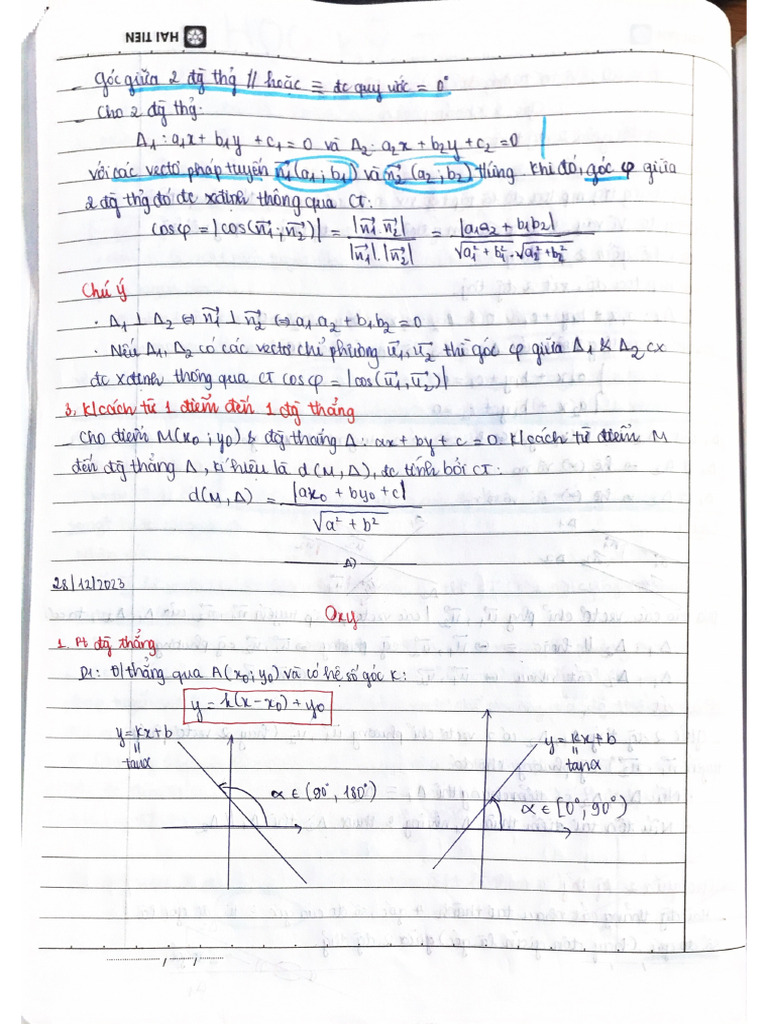 HẢI TIẾN
_ Góc giữa 2 đg thg // hoặc ≡ đc quy ước = 0°
_ Cho 2 đg thg:
Δ1 : a1x + b1y + c1 = 0 và Δ2 : a2x + b2y + c2 = 0
với các vectơ pháp tuyến n1→(a1 ; b1) và n2→(a2 ; b2) t/ứng. Khi đó, góc φ giữa
2 đg thg đó đc xđịnh thông qua CT:
cosφ = |cos(n1→ ; n2→)| = |n1→ . n2→| / |n1→| . |n2→| = |a1a2 + b1b2| / √(a1² + b1²) . √(a2² + b2²)
Chú ý
. Δ1 ⊥ Δ2 ⇔ n1→ ⊥ n2→ ⇔ a1a2 + b1b2 = 0
. Nếu Δ1, Δ2 có các vectơ chỉ phương u1→, u2→ thì góc φ giữa Δ1 & Δ2 cx
đc xđịnh thông qua CT cosφ = |cos(u1→, u2→)|
3, K/cách từ 1 điểm đến 1 đg thẳng
_ Cho điểm M(x0 ; y0) & đg thẳng Δ : ax + by + c = 0. K/cách từ điểm M
đến đg thẳng Δ, kí hiệu là d(M, Δ), đc tính bởi CT:
d(M, Δ) = |ax0 + by0 + c| / √(a² + b²)
28/12/2023
Oxy
1. Pt đg thẳng
D1: Đ/thẳng qua A(x0 ; y0) và có hệ số góc k:
y = k(x - x0) + y0
y = kx + b
= tanα
α ∈ (90°, 180°)
y = kx + b
= tanα
α ∈ [0° ; 90°)